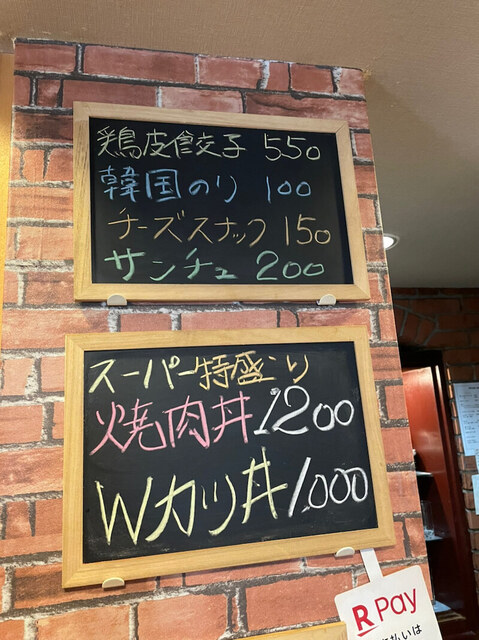 鶏皮餃子 550
韓国のり 100
チーズスナック 150
サンチュ 200
スーパー特盛り
焼肉丼 1200
Wカツ丼 1,000
R Pay
払いは